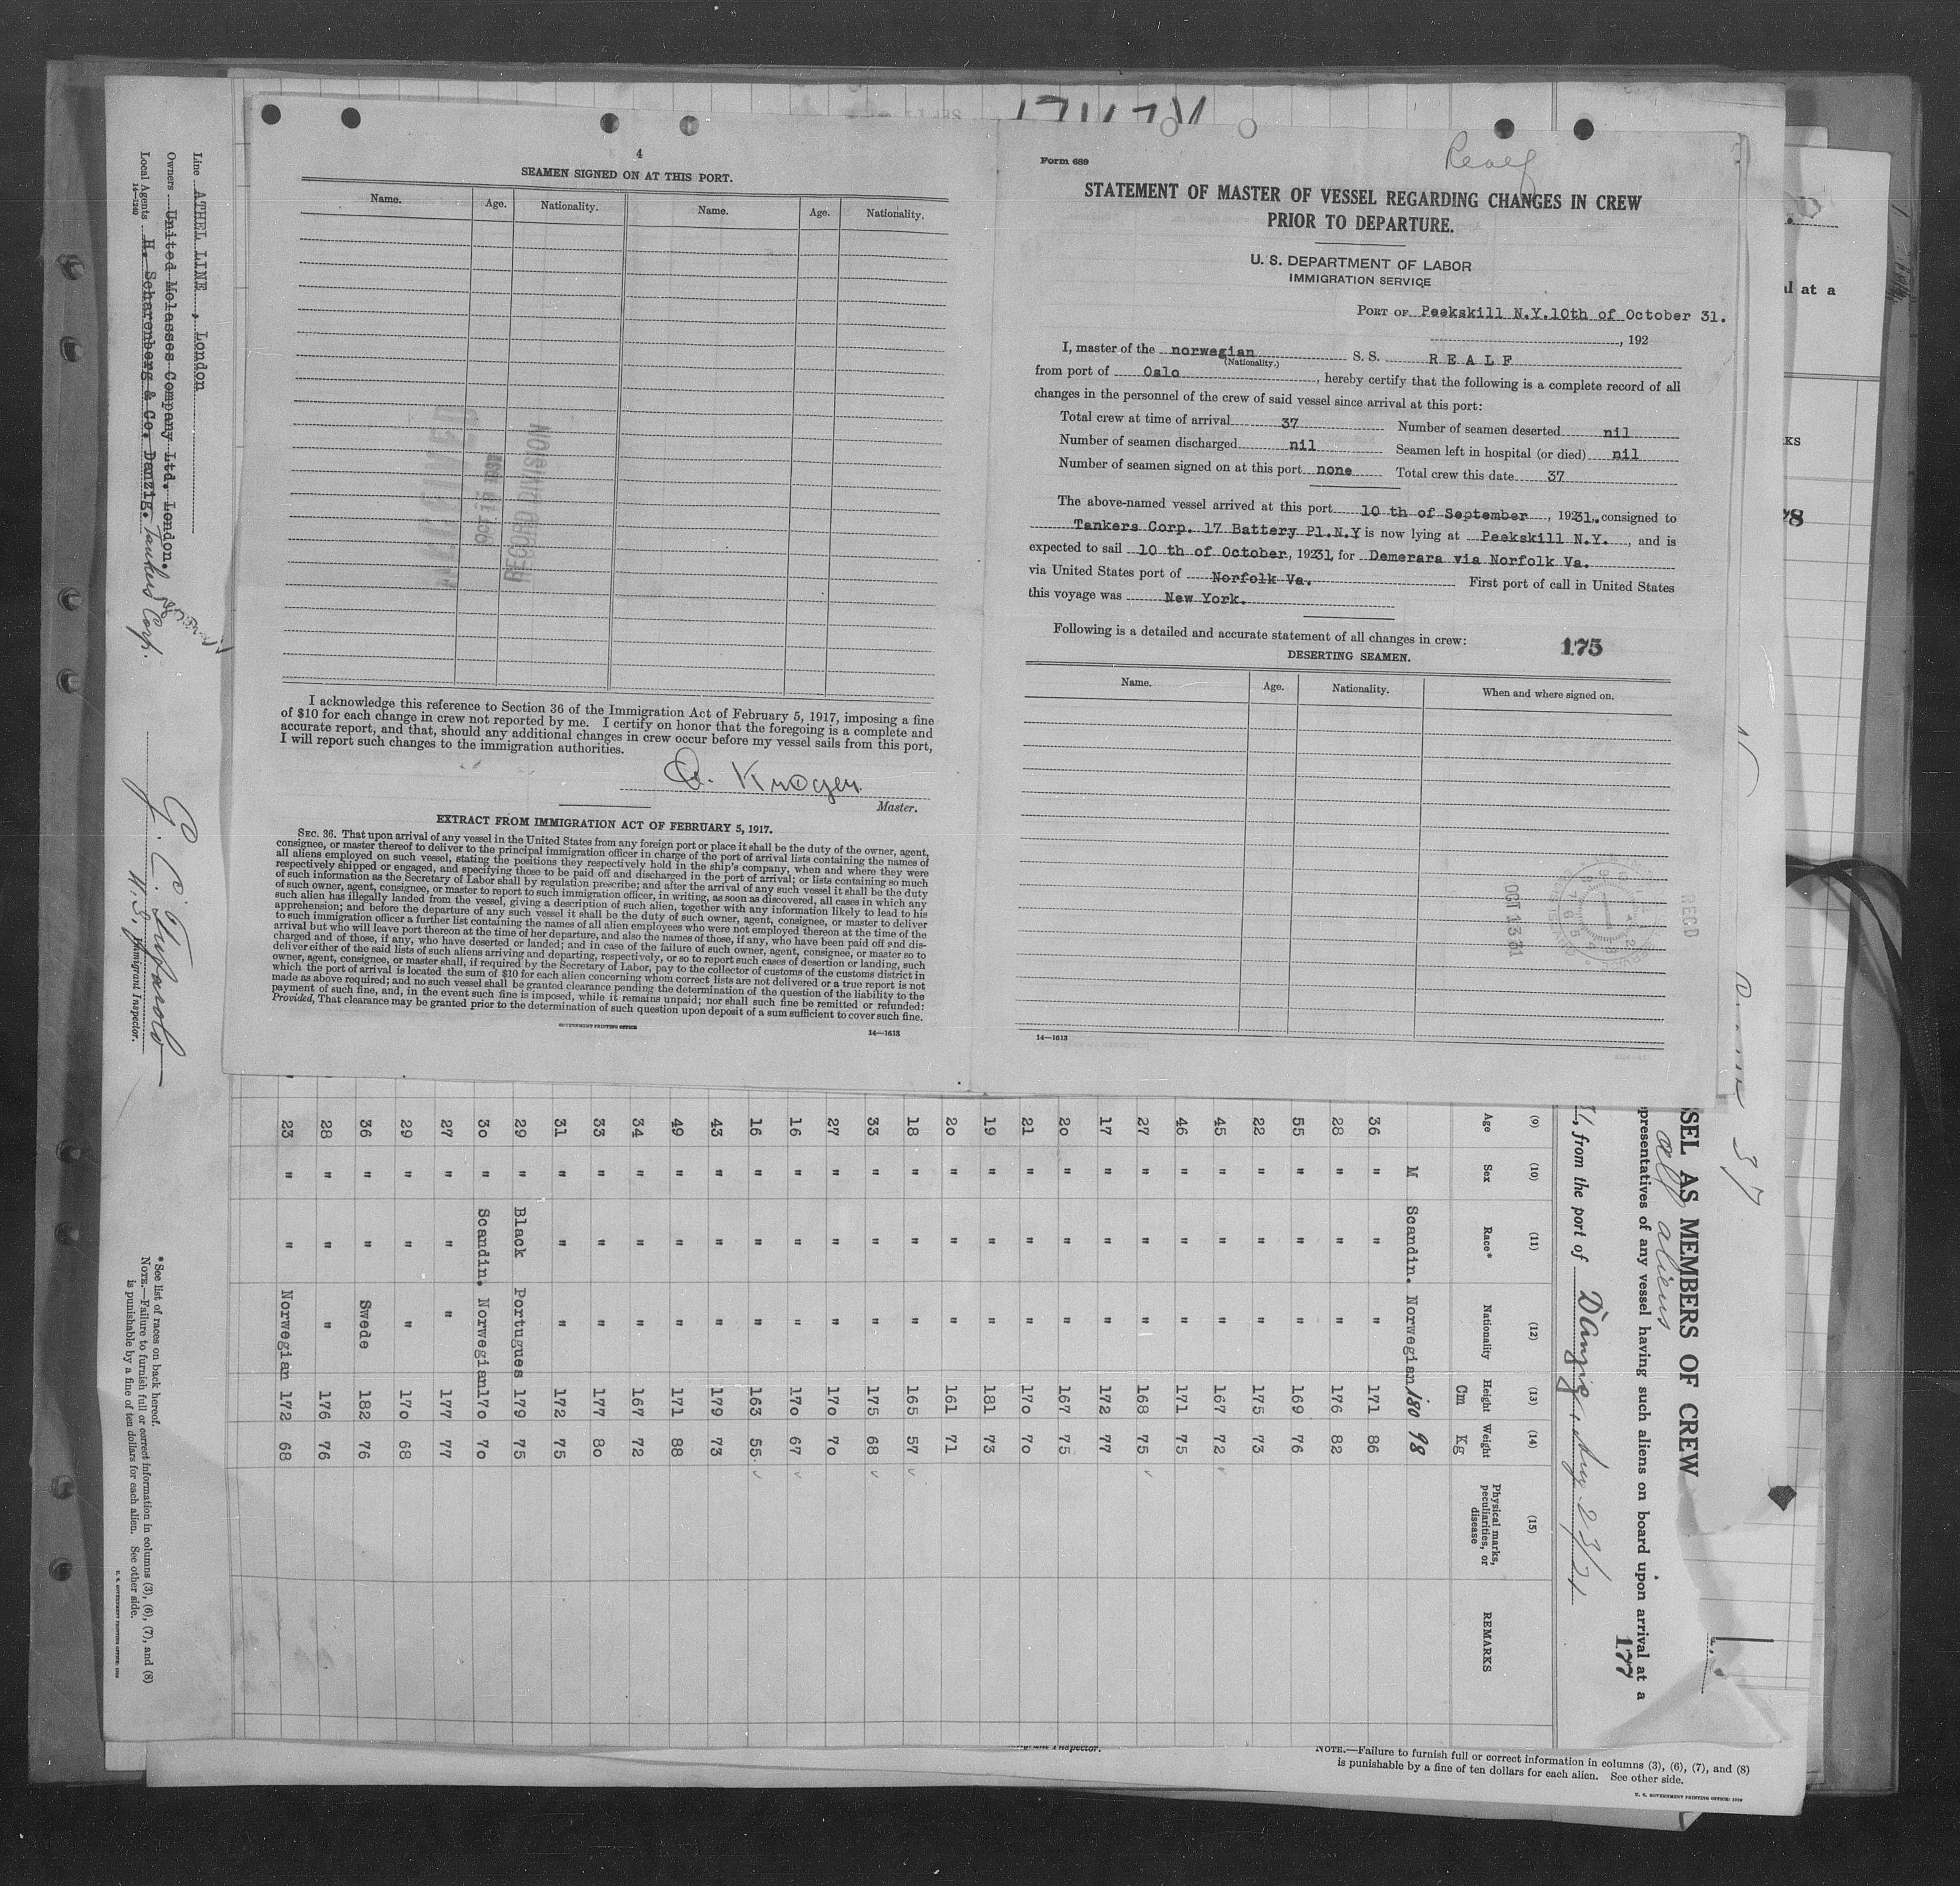 4
SEAMEN SIGNED ON AT THIS PORT.
Name. Age. Nationality. Name. Age. Nationality.
OCT 13 1931
RECORD DIVISION
I acknowledge this reference to Section 36 of the Immigration Act of February 5, 1917, imposing a fine
of $10 for each change in crew not reported by me. I certify on honor that the foregoing is a complete and
accurate report, and that, should any additional changes in crew occur before my vessel sails from this port,
I will report such changes to the immigration authorities.
Kroger
Master.
EXTRACT FROM IMMIGRATION ACT OF FEBRUARY 5, 1917.
SEC. 36. That upon arrival of any vessel in the United States from any foreign port or place it shall be the duty of the owner, agent,
consignee, or master thereof to deliver to the principal immigration officer in charge of the port of arrival lists containing the names of
all aliens employed on such vessel, stating the positions they respectively hold in the ship's company, when and where they were
respectively shipped or engaged, and specifying those to be paid off and discharged in the port of arrival; or lists containing so much
of such information as the Secretary of Labor shall by regulation prescribe; and after the arrival of any such vessel it shall be the duty
of such owner, agent, consignee, or master to report to such immigration officer, in writing, as soon as discovered, all cases in which any
such alien has illegally landed from the vessel, giving a description of such alien, together with any information likely to lead to his
apprehension; and before the departure of any such vessel it shall be the duty of such owner, agent, consignee, or master to deliver
to such immigration officer a further list containing the names of all alien employees who were not employed thereon at the time of the
arrival but who will leave port thereon at the time of her departure, and also the names of those, if any, who have been paid off and dis-
charged and of those, if any, who have deserted or landed; and in case of the failure of such owner, agent, consignee, or master so to
deliver either of the said lists of such aliens arriving and departing, respectively, or so to report such cases of desertion or landing, such
owner, agent, consignee, or master shall, if required by the Secretary of Labor, pay to the collector of customs of the customs district in
which the port of arrival is located the sum of $10 for each alien concerning whom correct lists are not delivered or a true report is not
made as above required; and no such vessel shall be granted clearance pending the determination of the question of the liability to the
payment of such fine, and, in the event such fine is imposed, while it remains unpaid; nor shall such fine be remitted or refunded:
Provided, That clearance may be granted prior to the determination of such question upon deposit of a sum sufficient to cover such fine.
GOVERNMENT PRINTING OFFICE
14—1613
Form 689
Realf
STATEMENT OF MASTER OF VESSEL REGARDING CHANGES IN CREW
PRIOR TO DEPARTURE.
U. S. DEPARTMENT OF LABOR
IMMIGRATION SERVICE
PORT OF Peekskill N.Y. 10th of October 31.
, 192
I, master of the norwegian S. S. R E A L F
(Nationality.)
from port of Oslo, hereby certify that the following is a complete record of all
changes in the personnel of the crew of said vessel since arrival at this port:
Total crew at time of arrival 37 Number of seamen deserted nil
Number of seamen discharged nil Seamen left in hospital (or died) nil
Number of seamen signed on at this port none Total crew this date 37
The above-named vessel arrived at this port 10 th of September, 19231, consigned to
Tankers Corp. 17 Battery Pl.N.Y is now lying at Peekskill N.Y., and is
expected to sail 10 th of October, 19231, for Demerara via Norfolk Va.
via United States port of Norfolk Va. First port of call in United States
this voyage was New York.
Following is a detailed and accurate statement of all changes in crew:
175
DESERTING SEAMEN.
Name. Age. Nationality. When and where signed on.
OCT 13 31
RECD
14—1613
Line ATHEL LINE, London
Owners United Molasses Company Ltd. London.
Local Agents H. Scharenberg & Co. Danzig. Tankers Corp.
14—1240
U. S. Immigrant Inspector.
* See list of races on back hereof.
NOTE.—Failure to furnish full or correct information in columns (3), (6), (7), and (8)
is punishable by a fine of ten dollars for each alien. See other side.
U. S. GOVERNMENT PRINTING OFFICE: 1929
SSEL AS MEMBERS OF CREW
all aliens
37
presentatives of any vessel having such aliens on board upon arrival at a
177
, from the port of D'Anzig, Aug 23/31
(9) (10) (11) (12) (13) (14) (15)
Age Sex Race* Nationality Height Weight Physical marks, peculiarities, or disease REMARKS
Cm Kg
M Scandin. Norwegian 180 98
36 " " " 171 86
28 " " " 176 82
55 " " " 169 76
22 " " " 175 73
45 " " " 167 72
46 " " " 171 75
27 " " " 168 75
17 " " " 172 77
20 " " " 167 75
21 " " " 170 70
19 " " " 181 73
20 " " " 161 71
18 " " " 165 57
33 " " " 175 68
27 " " " 170 70
16 " " " 170 67
16 " " " 163 55
43 " " " 179 73
49 " " " 171 88
34 " " " 167 72
33 " " " 177 80
31 " " " 172 75
29 " Black Portugues 179 75
30 " Scandin. Norwegian 170 70
27 " " " 177 77
29 " " " 170 68
36 " " Swede 182 76
28 " " " 176 76
23 " " Norwegian 172 68
al at a
KS
78
Inspector.
NOTE.—Failure to furnish full or correct information in columns (3), (6), (7), and (8)
is punishable by a fine of ten dollars for each alien. See other side.
U. S. GOVERNMENT PRINTING OFFICE: 1929